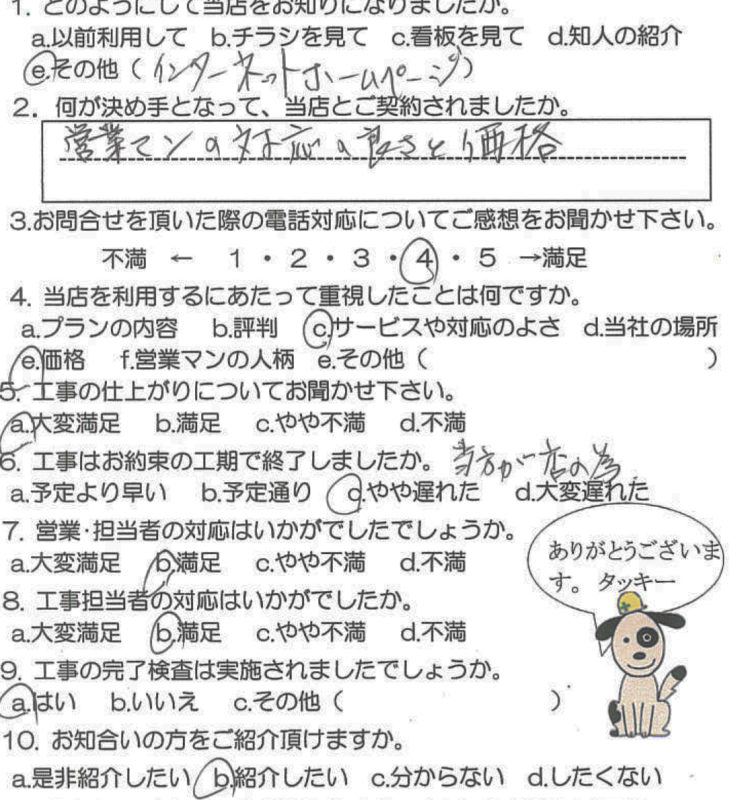 1. どのようにして当店をお知りになりましたか。
a.以前利用して b.チラシを見て c.看板を見て d.知人の紹介
e.その他（インターネットホームページ）
2. 何が決め手となって、当店とご契約されましたか。
営業マンの対応の良さと価格
3.お問合せを頂いた際の電話対応についてご感想をお聞かせ下さい。
不満 ← 1・2・3・4・5 →満足
4. 当店を利用するにあたって重視したことは何ですか。
a.プランの内容 b.評判 c.サービスや対応のよさ d.当社の場所
e.価格 f.営業マンの人柄 e.その他（ ）
5. 工事の仕上がりについてお聞かせ下さい。
a.大変満足 b.満足 c.やや不満 d.不満
6. 工事はお約束の工期で終了しましたか。 当方が店の為
a.予定より早い b.予定通り c.やや遅れた d.大変遅れた
7. 営業・担当者の対応はいかがでしたでしょうか。
a.大変満足 b.満足 c.やや不満 d.不満
ありがとうございま
す。 タッキー
8. 工事担当者の対応はいかがでしたか。
a.大変満足 b.満足 c.やや不満 d.不満
9. 工事の完了検査は実施されましたでしょうか。
a.はい b.いいえ c.その他（ ）
10. お知合いの方をご紹介頂けますか。
a.是非紹介したい b.紹介したい c.分からない d.したくない